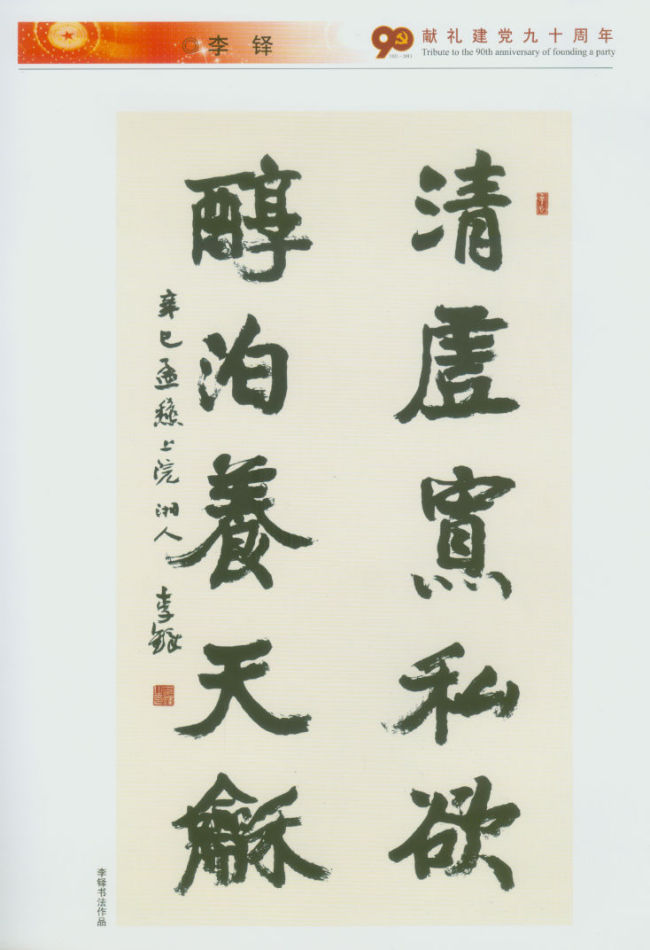 ◎李 铎
90
1921-2011
献礼建党九十周年
Tribute to the 90th anniversary of founding a party
清虛寡私欲
醇泊養天龢
辛巳孟穐上浣 湘人 李鐸
李铎书法作品